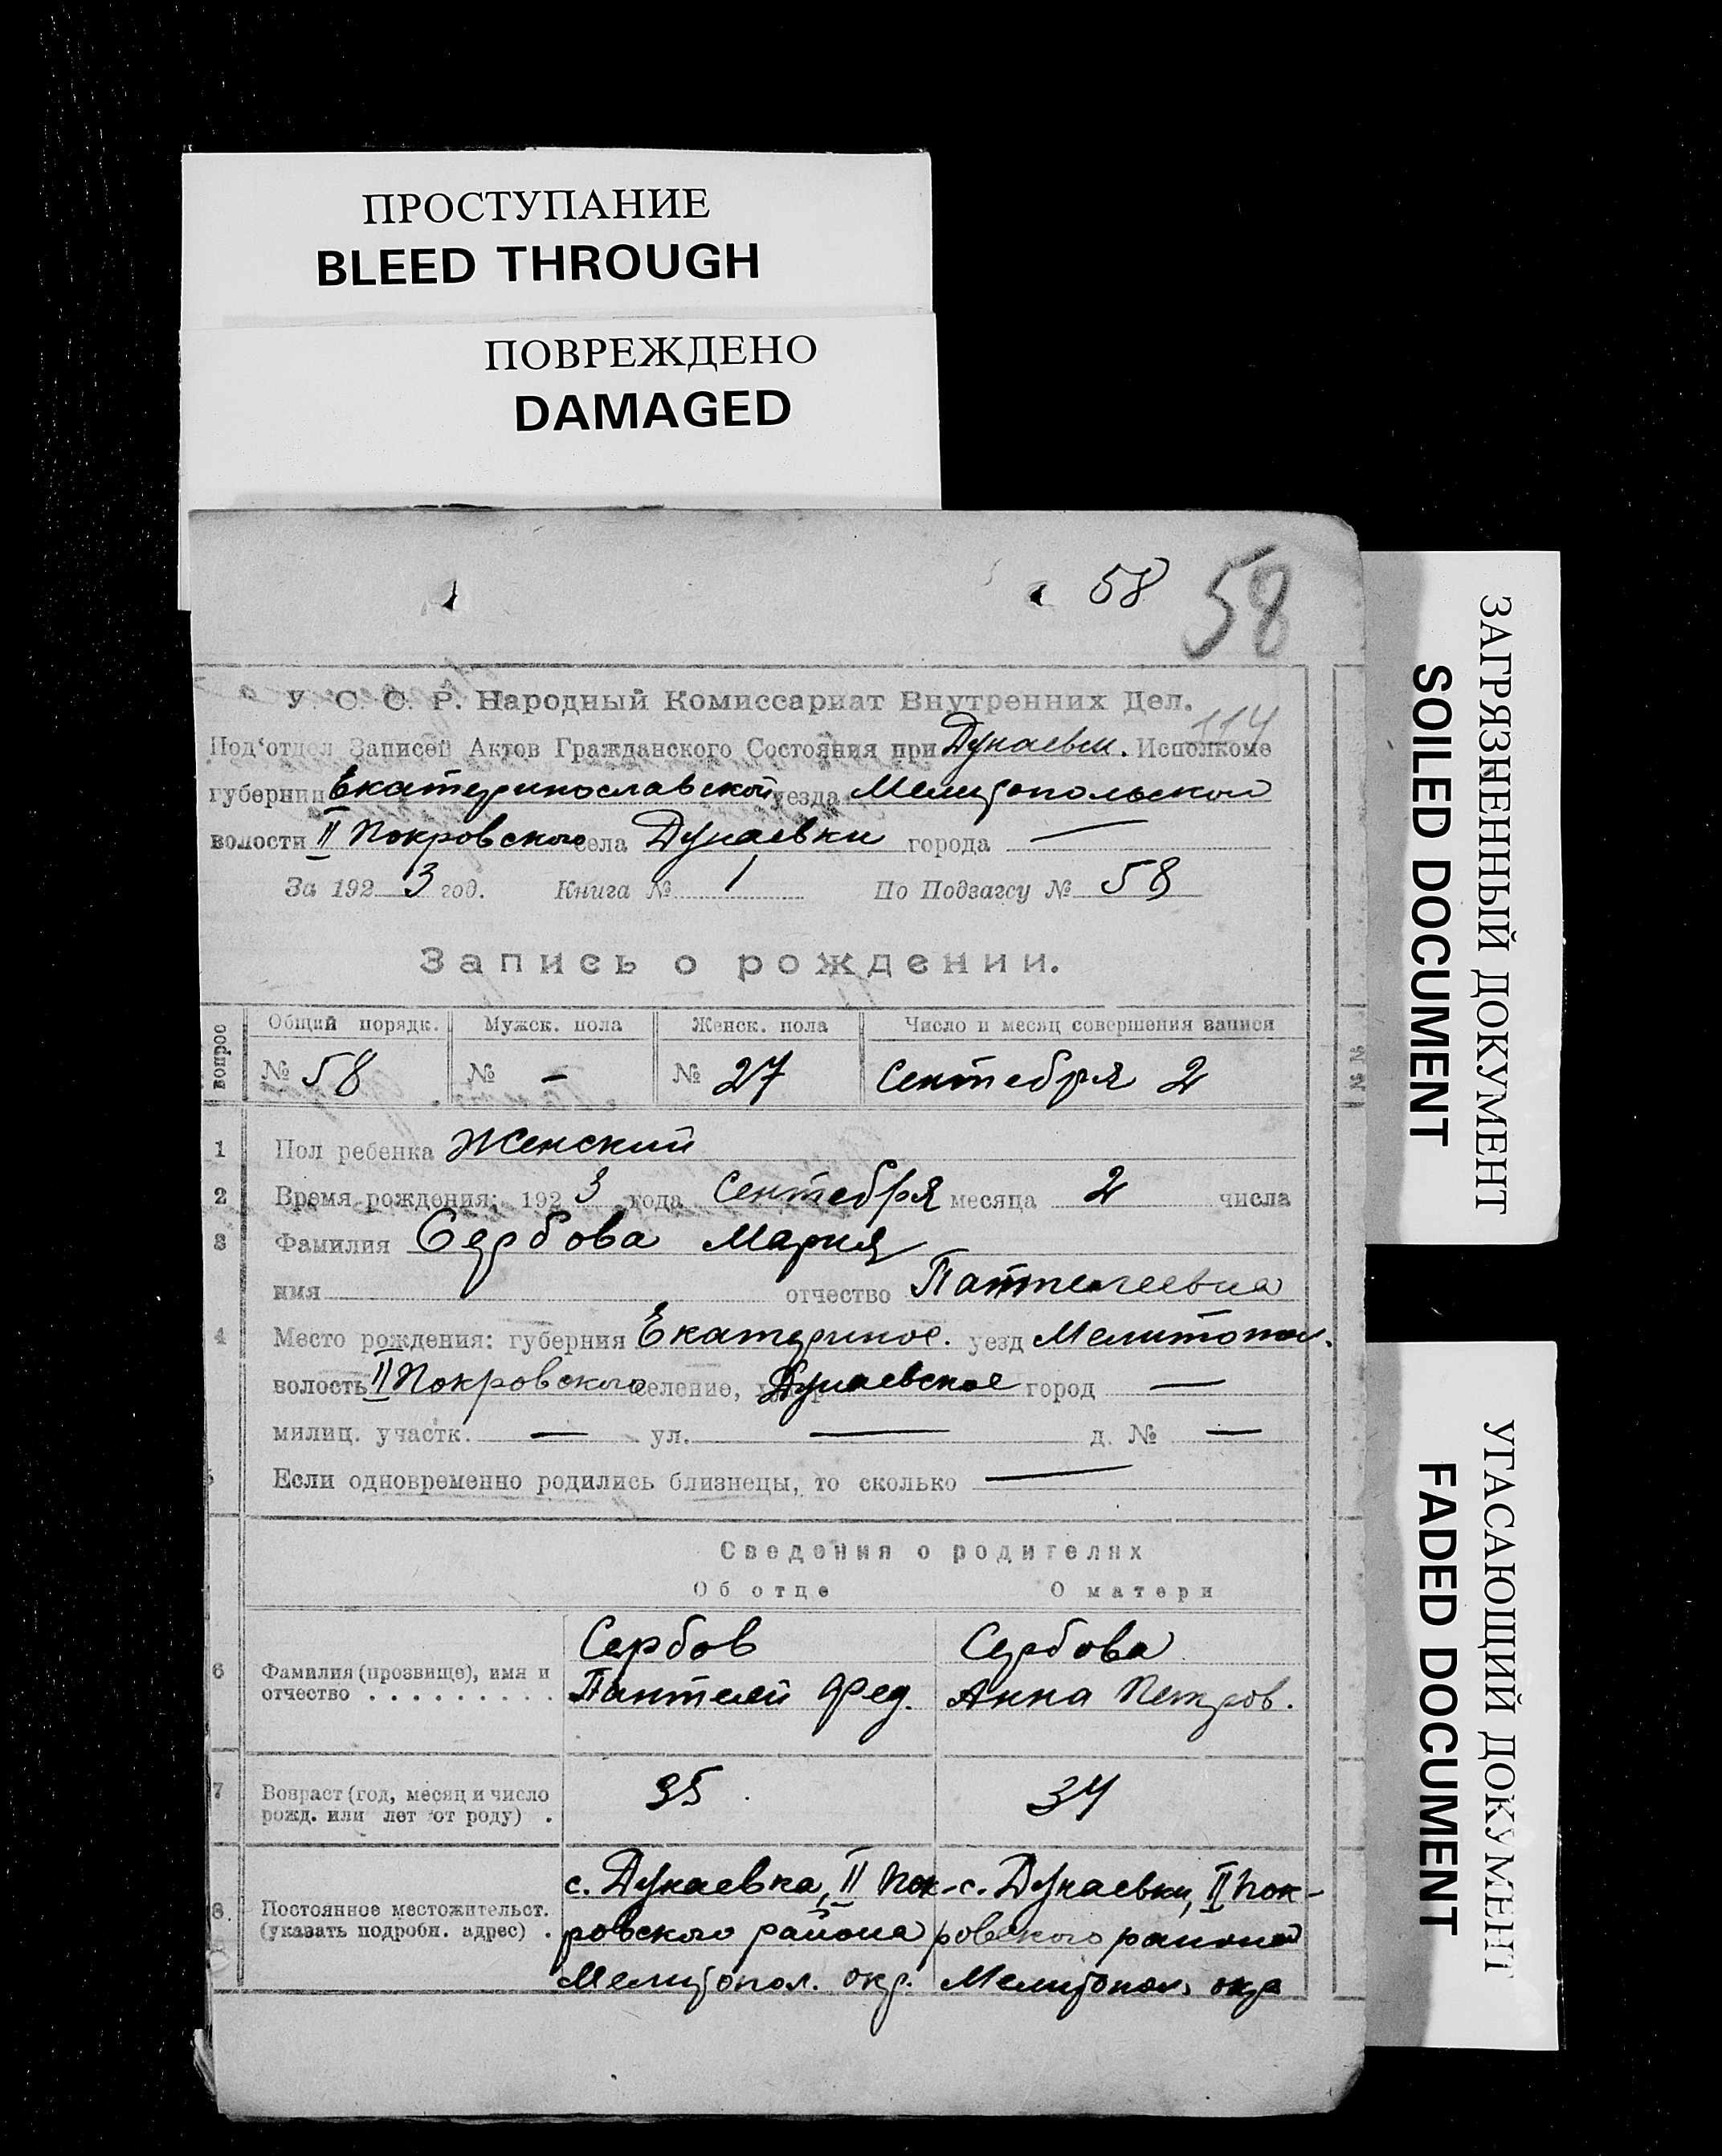 ПРОСТУПАНИЕ
BLEED THROUGH
ПОВРЕЖДЕНО
DAMAGED
58 58
У. С. С. Р. Народный Комиссариат Внутренних Дел.
114
Под'отдел Записей Актов Гражданского Состояния при Дунаевск. Исполкоме
губернии Екатеринославской уезда Мелитопольского
волости II Покровского села Дунаевки города —
За 1923 год. Книга № 1 По Подзагсу № 58
Запись о рождении.
вопрос Общий порядк. Мужск. пола Женск. пола Число и месяц совершения записи
№ 58 № – № 27 Сентебря 2
№№
1 Пол ребенка Женский
2 Время рождения: 1923 года Сентебря месяца 2 числа
3 Фамилия Сербова Мария
имя отчество Пантелеевна
4 Место рождения: губерния Екатеринос. уезд Мелитопол.
волость II Покровского селение, Дунаевское город —
милиц. участк. — ул. — д. № —
5 Если одновременно родились близнецы, то сколько —
Сведения о родителях
Об отце О матери
Сербов Сербова
6 Фамилия (прозвище), имя и
отчество . . . . . . . . . Пантелей Фед. Анна Петров.
7 Возраст (год, месяц и число
рожд. или лет от роду) . 35 34
с. Дунаевка, II Пок- с. Дунаевки, II Пок-
8. Постоянное местожительст.
(указать подробн. адрес) . ровского района ровского района
Мелитопол. окр. Мелитопол. окр
ЗАГРЯЗНЕННЫЙ ДОКУМЕНТ
SOILED DOCUMENT
УГАСАЮЩИЙ ДОКУМЕНТ
FADED DOCUMENT